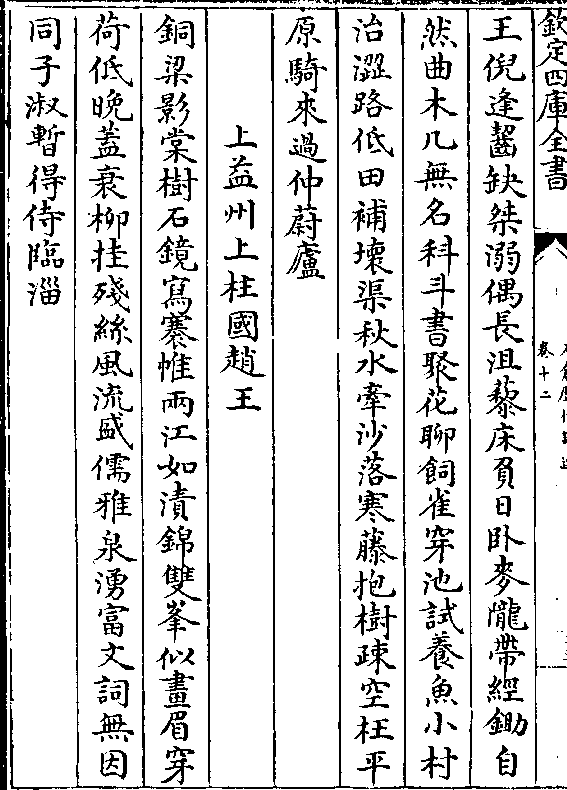 欽定四庫全書
卷十二
王倪逢齧缺桀溺偶長沮藜床負日卧麥隴帶經鋤自
然曲木几無名科斗書聚花聊飼雀穿池試養魚小村
治澀路低田補壞渠秋水牽沙落寒藤抱樹疎空枉平
原騎來過仲蔚廬
上益州上柱國趙王
銅梁影棠樹石鏡寫褰帷兩江如漬錦雙峯似畫眉穿
荷低晚蓋衰柳挂殘絲風流盛儒雅泉湧富文詞無因
同子淑暫得侍臨淄